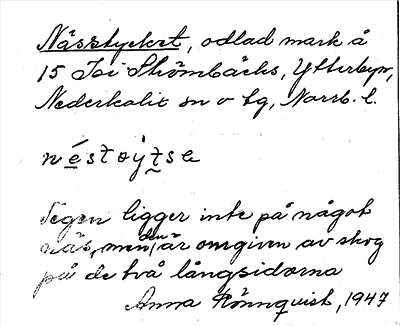 Nässtycket, odlad mark å
15 Joi Strömbäcks, Ytterbyn,
Nederkalix sn o tg, Norrb. l.
néstøýtse
Tegen ligger inte på något
näs, men den är omgiven av skog
på de två långsidorna
Anna Rönnquist, 1947